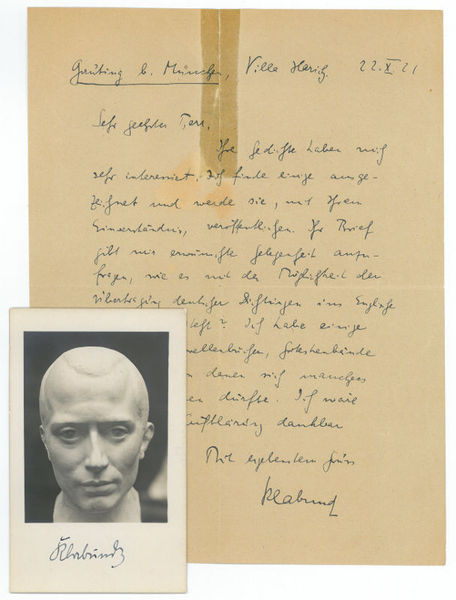 Gauting b. München, Villa Harig. 22.X.21
Sehr geehrter Herr,
Ihre Gedichte haben mich
sehr interessiert. Ich finde einige ausge-
zeichnet und werde sie, mit Ihrem
Einverständnis, veröffentlichen. Ihr Brief
gibt mir erwünschte Gelegenheit anzu-
fragen, wie es mit der Möglichkeit der
Übertragung deutscher Dichtungen ins Englische
steht? Ich habe einige
denen sich manches
dürfte. Ich wäre
Aufklärung dankbar
Mit ergebenstem Gruss
Klabund
Klabund